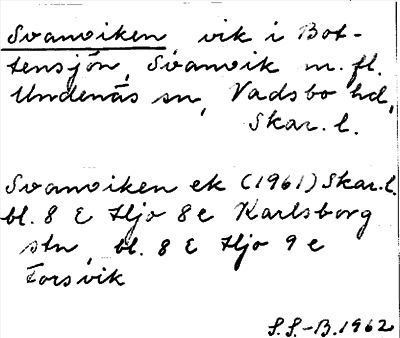 Svanviken vik i Bot-
tensjön, Svanvik m. fl.
Undenäs sn, Vadsbo hd,
Skar. l.
Svanviken ek (1961) Skar. l.
bl. 8 E Hjo 8 e Karlsborg
stn, bl. 8 E Hjo 9 e
Forsvik
S.S.-B. 1962